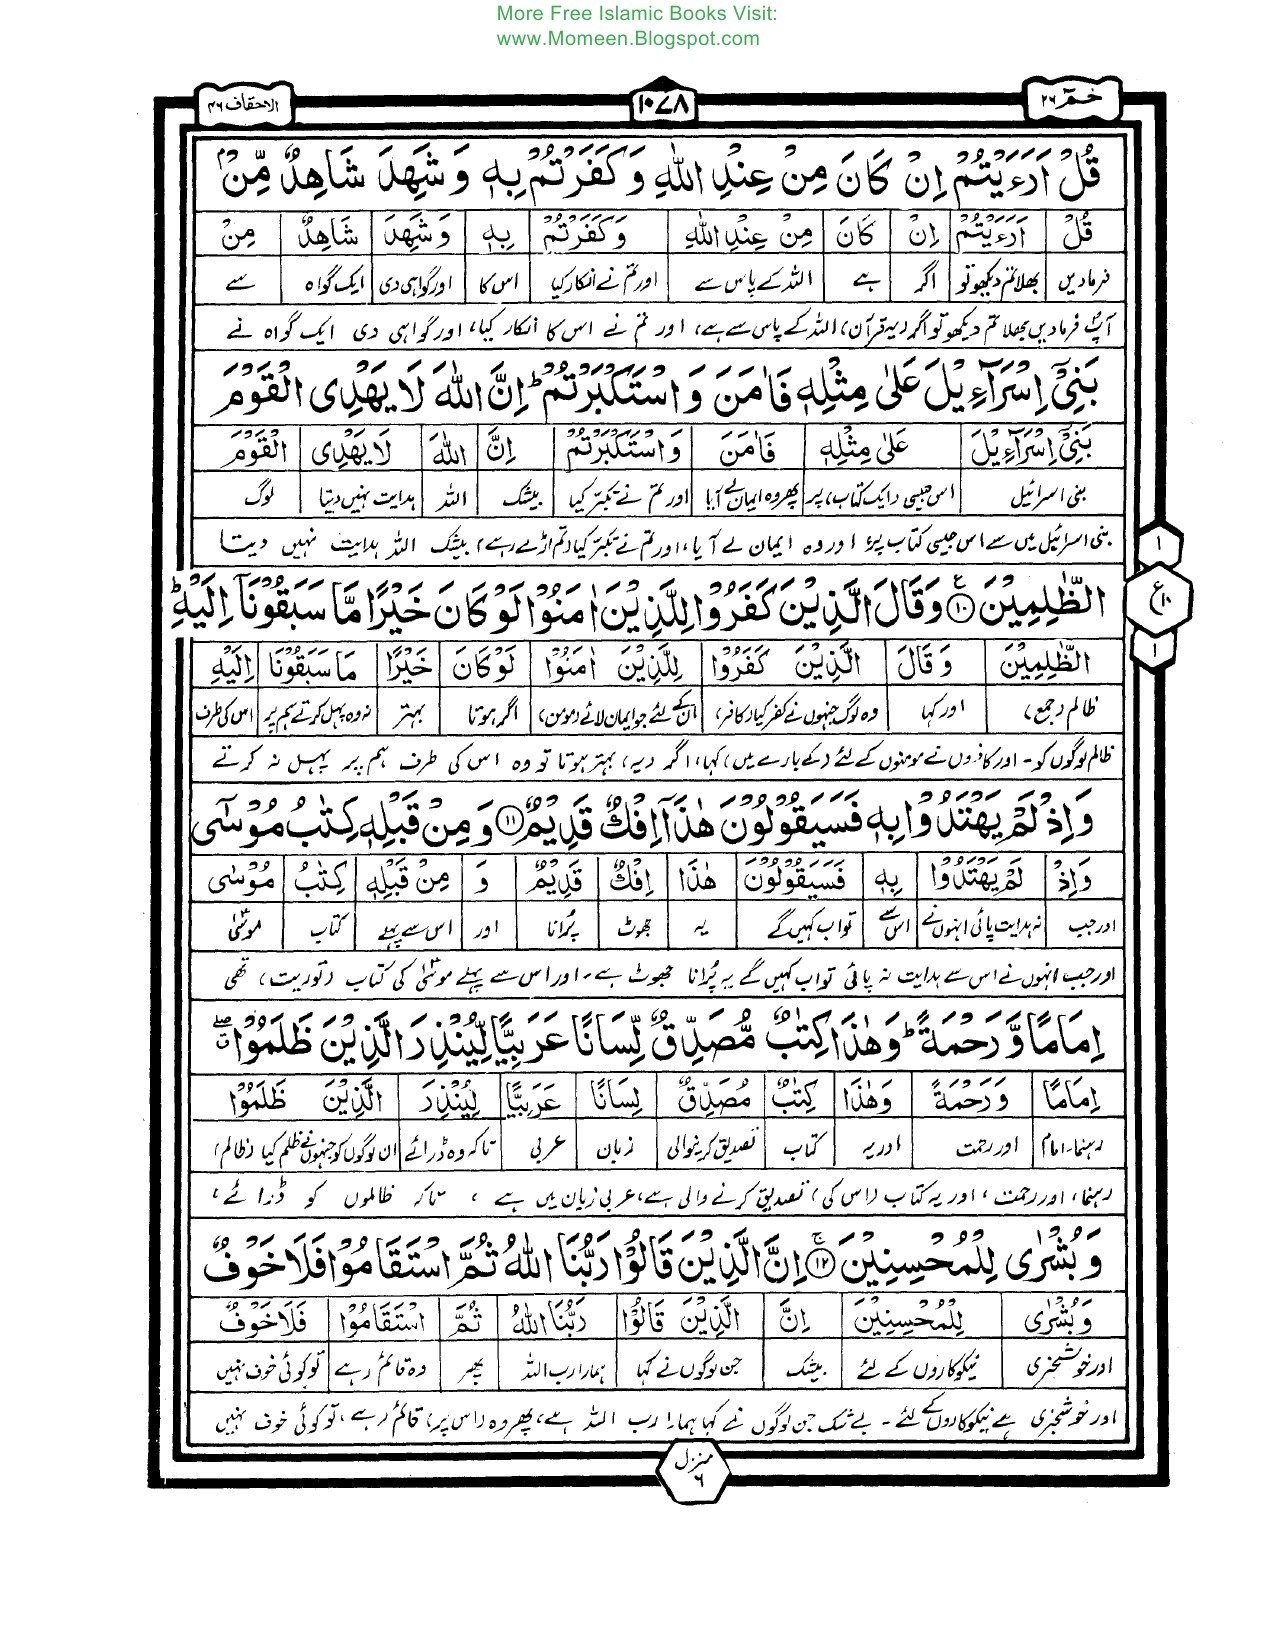 More Free Islamic Books Visit:
www.Momeen.Blogspot.com
حٰمٓ ۲۶
۱۰۷۸
الاحقاف ۴۶
قُلْ اَرَءَيْتُمْ اِنْ كَانَ مِنْ عِنْدِ اللّٰهِ وَكَفَرْتُمْ بِهٖ وَشَهِدَ شَاهِدٌ مِّنْۢ
قُلْ اَرَءَيْتُمْ اِنْ كَانَ مِنْ عِنْدِ اللّٰهِ وَكَفَرْتُمْ بِهٖ وَشَهِدَ شَاهِدٌ مِنْ
فرمادیں بھلا تم دیکھو تو اگر ہے اللہ کے پاس سے اور تم نے انکار کیا اس کا اور گواہی دی ایک گواہ سے
آپؐ فرمادیں بھلا تم دیکھو تو اگر (یہ قرآن) اللہ کے پاس سے ہے، اور تم نے اس کا انکار کیا، اور گواہی دی ایک گواہ نے
بَنِيْٓ اِسْرَآءِيْلَ عَلٰى مِثْلِهٖ فَاٰمَنَ وَاسْتَكْبَرْتُمْ ؕ اِنَّ اللّٰهَ لَا يَهْدِى الْقَوْمَ
بَنِيْٓ اِسْرَآءِيْلَ عَلٰى مِثْلِهٖ فَاٰمَنَ وَاسْتَكْبَرْتُمْ اِنَّ اللّٰهَ لَا يَهْدِى الْقَوْمَ
بنی اسرائیل اس جیسی (ایک کتاب) پر پھر وہ ایمان لے آیا اور تم نے تکبر کیا بیشک اللہ ہدایت نہیں دیتا لوگ
بنی اسرائیل میں سے اس جیسی کتاب پر اور وہ ایمان لے آیا، اور تم نے تکبر کیا (تم اڑے رہے) بیشک اللہ ہدایت نہیں دیتا
الظّٰلِمِيْنَ ۝۱۰ وَقَالَ الَّذِيْنَ كَفَرُوْا لِلَّذِيْنَ اٰمَنُوْا لَوْ كَانَ خَيْرًا مَّا سَبَقُوْنَآ اِلَيْهِ ؕ
۱
ع ۱۰
۱
الظّٰلِمِيْنَ وَقَالَ الَّذِيْنَ كَفَرُوْا لِلَّذِيْنَ اٰمَنُوْا لَوْ كَانَ خَيْرًا مَا سَبَقُوْنَا اِلَيْهِ
ظالم (جمع) اور کہا وہ لوگ جنہوں نے کفر کیا (کافر) ان کے لئے جو ایمان لائے (مومن) اگر ہوتا بہتر نہ وہ پہل کرتے ہم پر اس کی طرف
ظالم لوگوں کو۔ اور کافروں نے مومنوں کے لئے (کے بارے میں) کہا، اگر (یہ) بہتر ہوتا تو وہ اس کی طرف ہم پر پہل نہ کرتے
وَاِذْ لَمْ يَهْتَدُوْا بِهٖ فَسَيَقُوْلُوْنَ هٰذَآ اِفْكٌ قَدِيْمٌ ۝۱۱ وَمِنْ قَبْلِهٖ كِتٰبُ مُوْسٰٓى
وَاِذْ لَمْ يَهْتَدُوْا بِهٖ فَسَيَقُوْلُوْنَ هٰذَا اِفْكٌ قَدِيْمٌ وَ مِنْ قَبْلِهٖ كِتٰبُ مُوْسٰٓى
اور جب نہ ہدایت پائی انہوں نے اس سے تو اب کہیں گے یہ جھوٹ پُرانا اور اس سے پہلے کتاب موسٰیؑ
اور جب انہوں نے اس سے ہدایت نہ پائی تو اب کہیں گے یہ پُرانا جھوٹ ہے۔ اور اس سے پہلے موسٰیؑ کی کتاب (توریت) تھی
اِمَامًا وَّرَحْمَةً ؕ وَهٰذَا كِتٰبٌ مُّصَدِّقٌ لِّسَانًا عَرَبِيًّا لِّيُنْذِرَ الَّذِيْنَ ظَلَمُوْا
اِمَامًا وَرَحْمَةً وَهٰذَا كِتٰبٌ مُصَدِّقٌ لِسَانًا عَرَبِيًّا لِيُنْذِرَ الَّذِيْنَ ظَلَمُوْا
رہنما۔ امام اور رحمت اور یہ کتاب تصدیق کرنیوالی زبان عربی تاکہ وہ ڈرائے ان لوگوں کو جنہوں نے ظلم کیا (ظالم)
رہنما، اور رحمت، اور یہ کتاب (اس کی) تصدیق کرنے والی ہے، عربی زبان میں ہے ، تاکہ ظالموں کو ڈرائے،
وَبُشْرٰى لِلْمُحْسِنِيْنَ ۝۱۲ اِنَّ الَّذِيْنَ قَالُوْا رَبُّنَا اللّٰهُ ثُمَّ اسْتَقَامُوْا فَلَا خَوْفٌ
وَبُشْرٰى لِلْمُحْسِنِيْنَ اِنَّ الَّذِيْنَ قَالُوْا رَبُّنَا اللّٰهُ ثُمَّ اسْتَقَامُوْا فَلَا خَوْفٌ
اور خوشخبری نیکوکاروں کے لئے بیشک جن لوگوں نے کہا ہمارا رب اللہ پھر وہ قائم رہے تو کوئی خوف نہیں
اور خوشخبری ہے نیکوکاروں کے لئے۔ بے شک جن لوگوں نے کہا ہمارا رب اللہ ہے، پھر وہ (اس پر) قائم رہے، تو کوئی خوف نہیں
منزل ۶